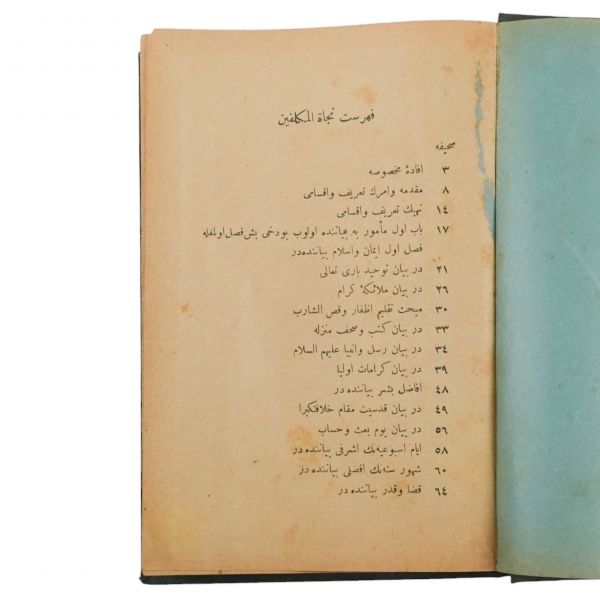 فهرست نجاة المكلفين
صحيفه
٣ افادۀ مخصوصه
٨ مقدمه وامرك تعريف واقسامى
١٤ نهيك تعريف واقسامى
١٧ باب اول مأمور به بياننده اولوب بودخى بش فصل اولمغله
فصل اول ايمان واسلام بياننده در
٢١ در بيان توحيد بارى تعالى
٢٦ در بيان ملائكۀ كرام
٣٠ مبحث تقليم اظفار وقص الشارب
٣٣ در بيان كتب وصحف منزله
٣٤ در بيان رسل وانبيا عليهم السلام
٣٩ در بيان كرامات اوليا
٤٨ افاضل بشر بياننده در
٤٩ در بيان قدسيت مقام خلافتكبرا
٥٦ در بيان يوم بعث وحساب
٥٨ ايام اسبوعيه نك اشرفى بياننده در
٦٠ شهور سنه نك افضلى بياننده در
٦٤ قضا وقدر بياننده در